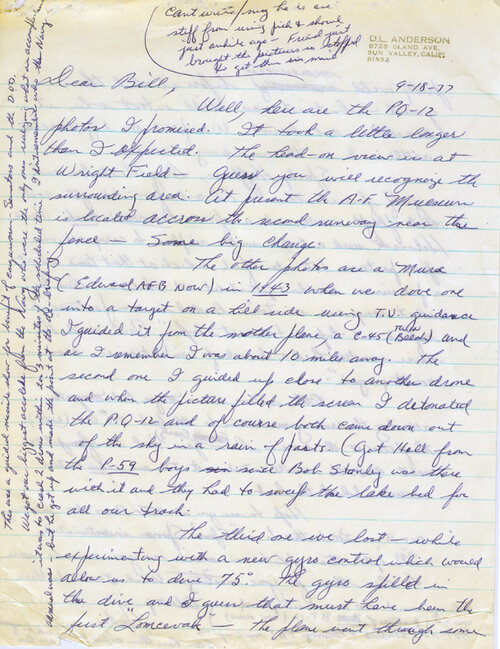 Can't write/my he is are
stiff from using pick & shovel
just awhile ago - Friend just
brought the pictures so I stopped
to get them in mail
D.L. ANDERSON
8725 OLAND AVE.
SUN VALLEY, CALIF.
91352
9-18-77
Dear Bill,
Well, here are the PQ-12
photos I promised. It took a little longer
than I expected. The head-on view is at
Wright Field - Guess you will recognize the
surrounding area. At present the A-F Museum
is located accross the second runway near the
fence - Some big change.
The other photos are a Muroc
(Edward AFB Now) in 1943 when we dove one
into a target on a hill side using T.V. guidance
I guided it from the mother plane, a C-45 (Twin Beech) and
as I remember I was about 10 miles away. The
second one I guided up close to another drone
and when the picture filled the screen I detonated
the P.Q-12 and of course both came down out
of the sky in a rain of parts. (Got Hell from
the P-59 boys since Bob Stanley was there
with it and they had to sweep the lake bed for
all our trash.
The third one we lost - while
experimenting with a new gyro control which would
allow us to dive 75°. The gyro spilled in
the dive and I guess that must have been the
first "Lomcevak" - the plane went through some
This was a guided missile show for benefit of Congressmen - Senators and the D.O.D.
We got our biggest accolade from the Navy who were the only ones realizing what an accomplishment
it was to crash 2 drones within 2 or 3 minutes of the scheduled time. I don't remember who the Navy
admiral was but he got up and made the point at the de-briefing